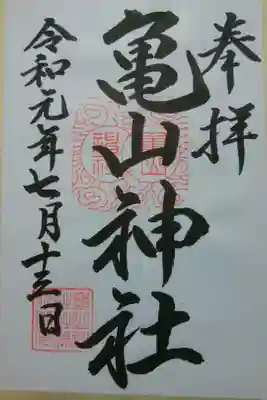 奉拝
亀山神社
令和元年七月十三日